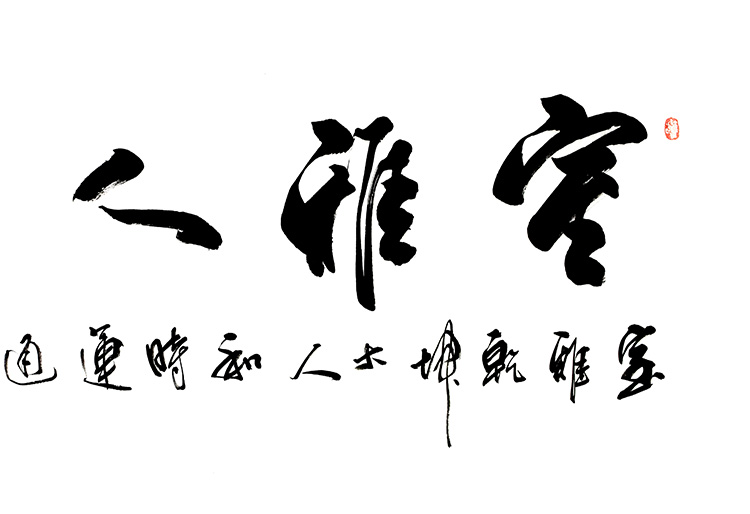 室雅人
室雅乾坤大人和時運通